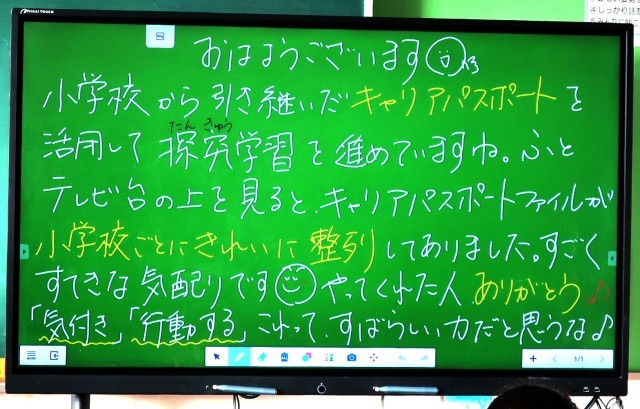 おはようございます
小学校から引き継いだキャリアパスポートを
たんきゅう
活用して探究学習を進めていますね。ふと
テレビ台の上を見ると、キャリアパスポートファイルが
小学校ごとにきれいに整列してありました。すごく
すてきな気配りです やってくれた人ありがとう♪
「気付き」「行動する」これってすばらしい力だと思うな♪
MENU
1/1